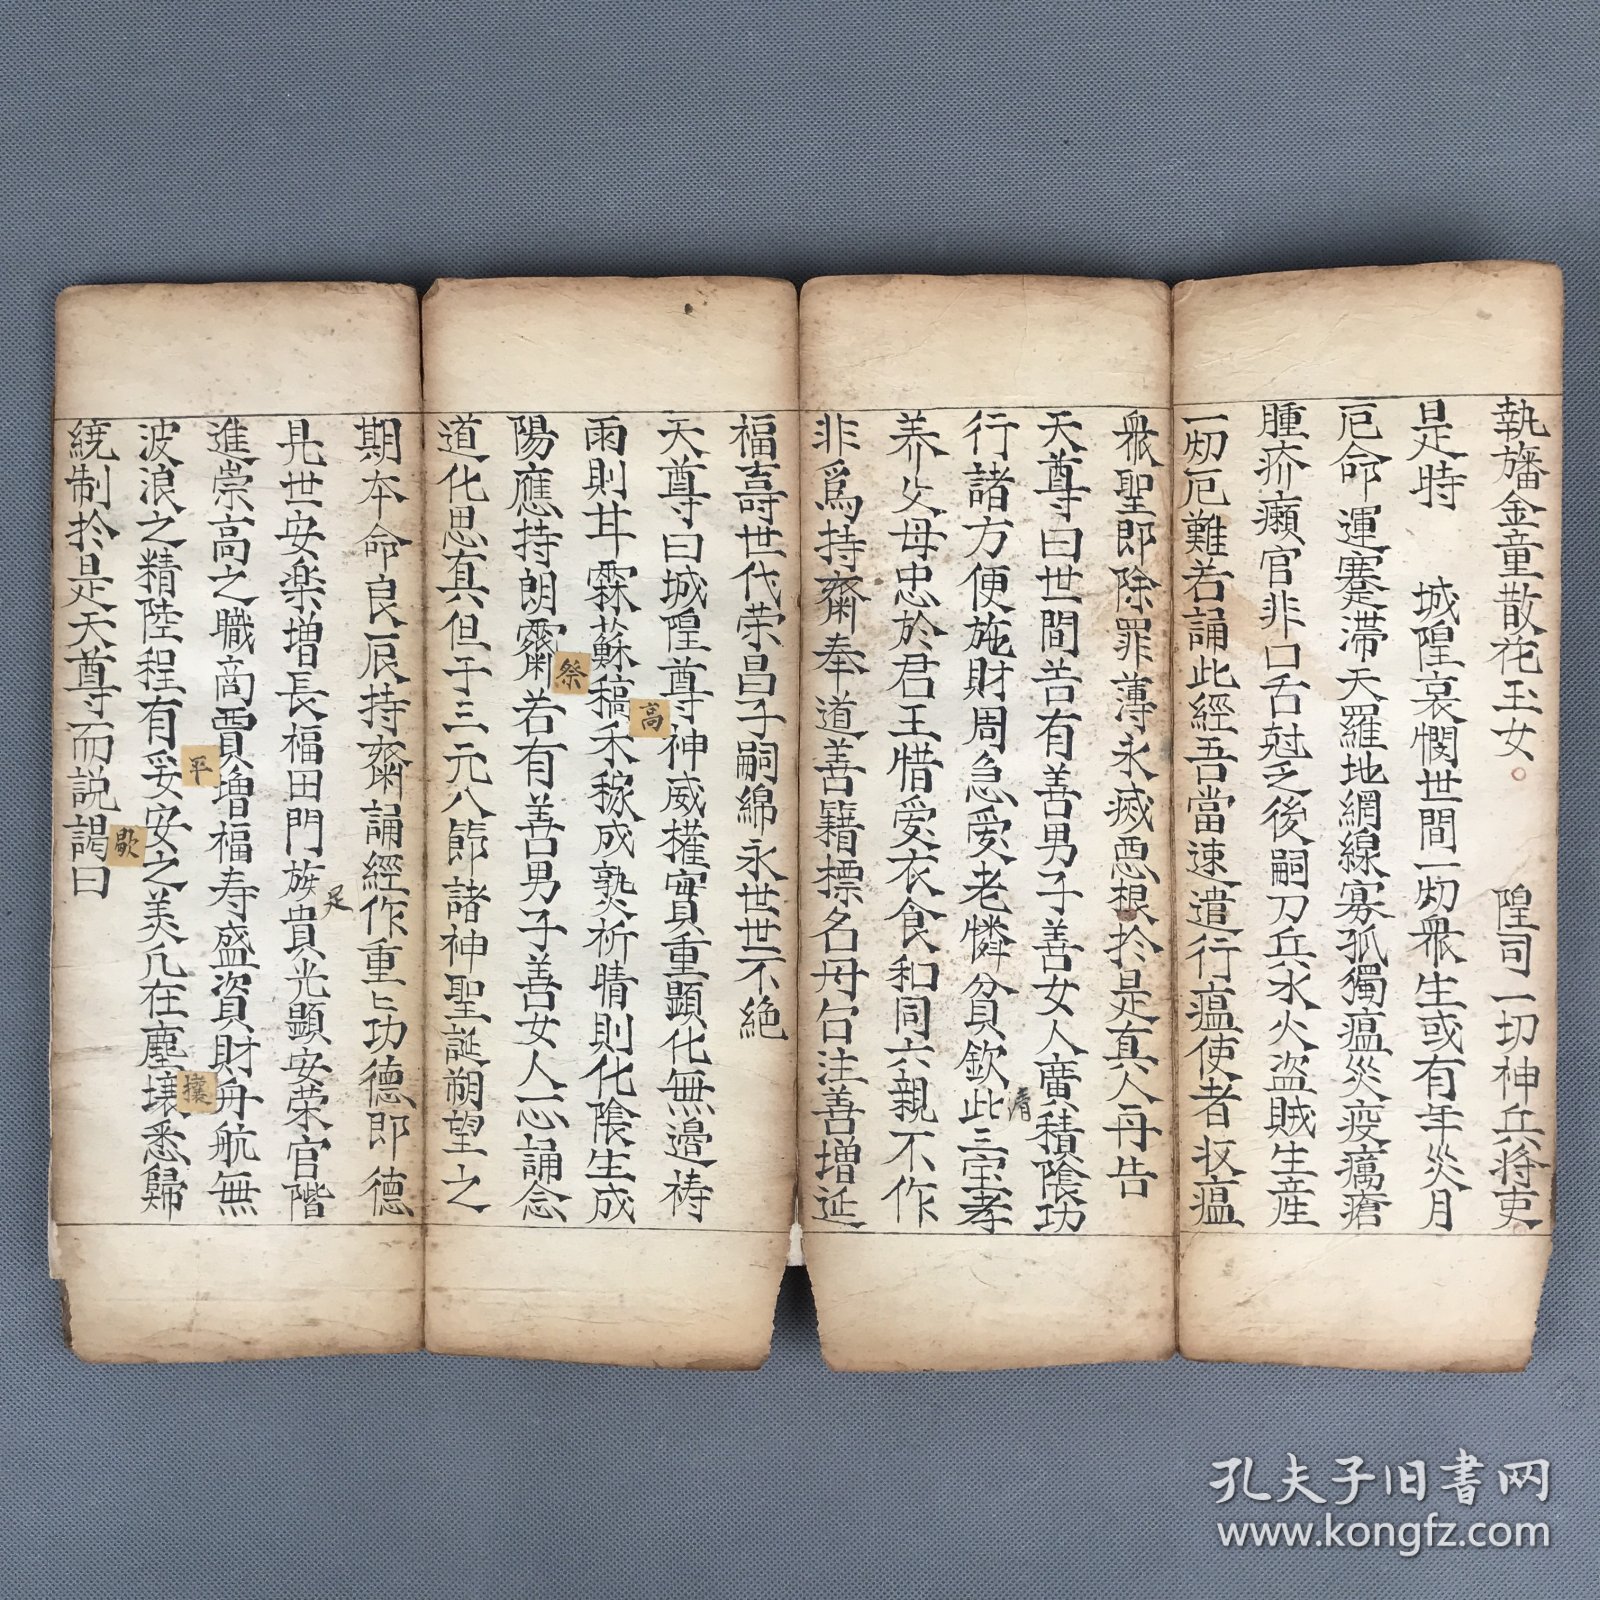 執旛金童散花玉女 隍司一切神兵將吏
是時 城隍哀憫世間一切眾生或有年災月
厄命運蹇滯天羅地網線寡孤獨瘟災疫癘瘡
腫疥癩官非口舌尅乏後嗣刀兵水火盜賊生產
一切厄難若誦此經吾當速遣行瘟使者收瘟
眾聖即除罪薄永滅惡根扵是真人再告
天尊曰世間若有善男子善女人廣積陰功
行諸方便施財周急愛老憐貧欽此三宝孝
清
养父母忠於君王惜愛衣食和同六親不作
非爲持齋奉道善籍標名丹台注善增延
福壽世代荣昌子嗣綿永世世不絶
天尊曰城隍尊神威權實重顯化無邊祷
高
雨則甘霖蘇稿禾稼成熟祈晴則化陰生成
祭
陽應持朗霽若有善男子善女人心誦念
道化思真但于三元八節諸神聖誕朔望之
期本命良辰持齋誦經作重上功德即德
足
見世安楽增長福田門族貴光顯安荣官階
進崇高之職商賈增福寿盛資財舟航無
平
波浪之精陸程有妥安之美凡在塵壌悉歸
攘
歇
統制扵是天尊而説謁曰
孔夫子旧書网
www.kongfz.com